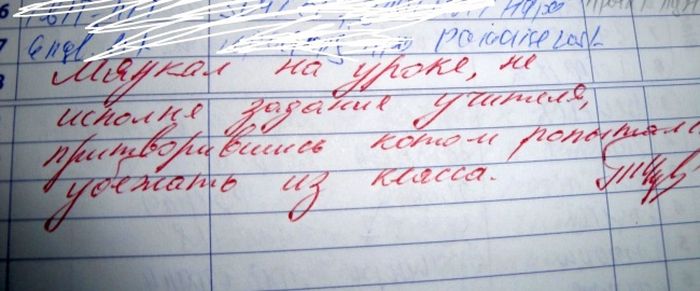 6
7
8
Мяукал на уроке, не
исполня задание учителя,
притворившись котом попытал
убежать из класса.